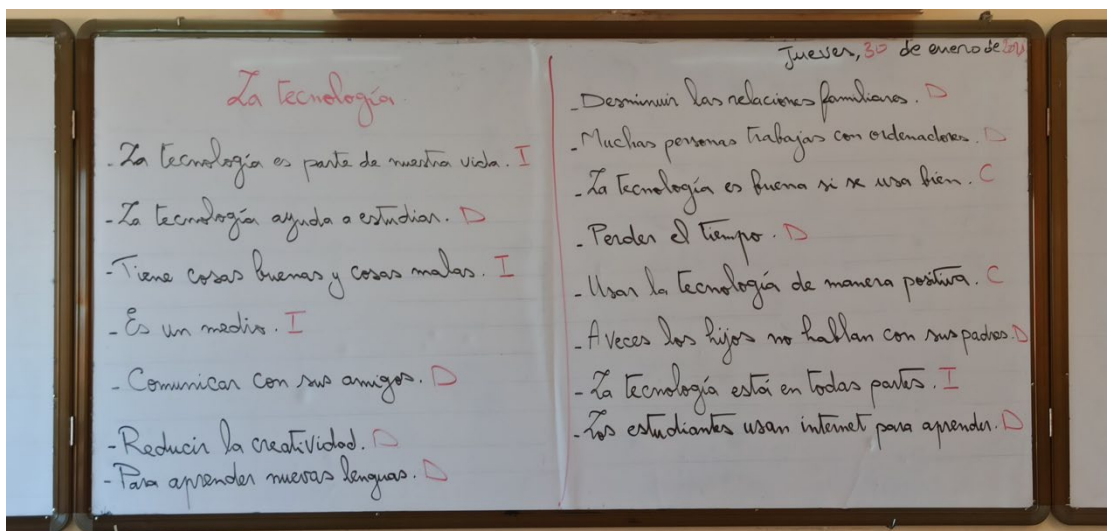 La tecnología.
- La tecnología es parte de nuestra vida. I
- La tecnología ayuda a estudiar. D
- Tiene cosas buenas y cosas malas. I
- Es un medio. I
- Comunicar con sus amigos. D
- Reducir la creatividad. D
- Para aprender nuevas lenguas. D
Jueves, 30 de enero de
- Desminuir las relaciones familiares. D
- Muchas personas trabajas con ordenadores. D
- La tecnología es buena si se usa bien. C
- Perder el tiempo. D
- Usar la tecnología de manera positiva. C
- A veces los hijos no hablan con sus padres. D
- La tecnología está en todas partes. I
- Los estudiantes usan internet para aprender. D